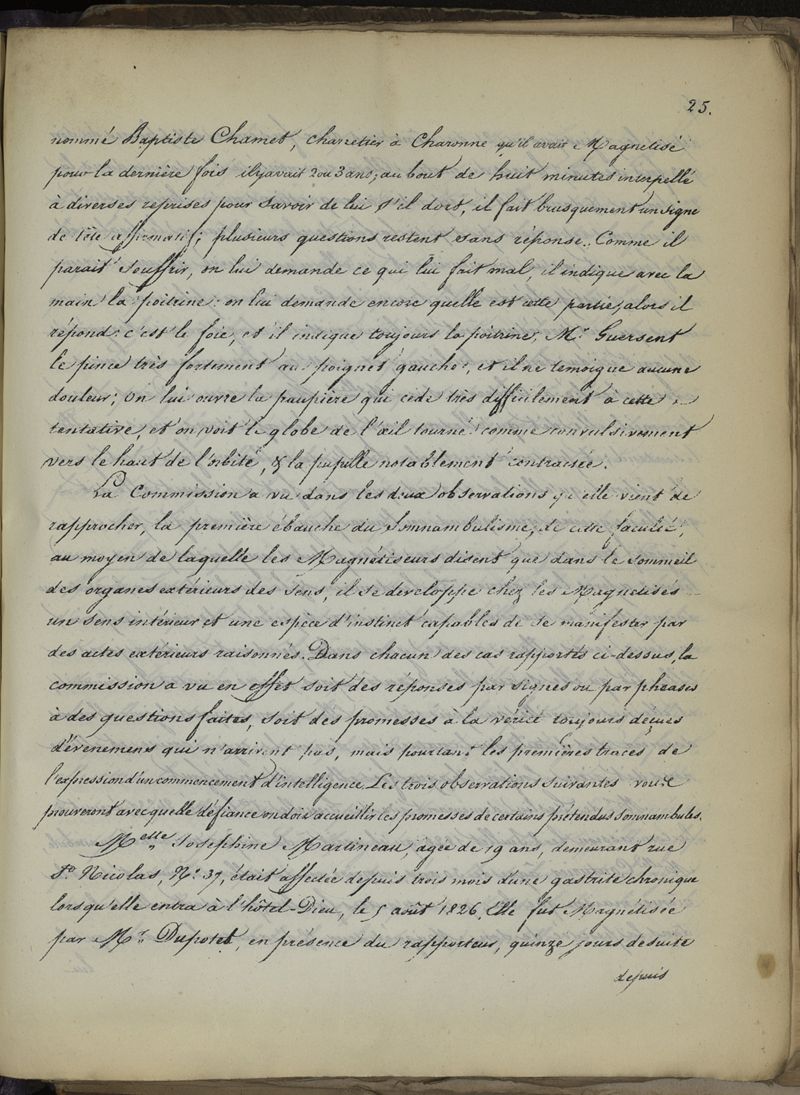 25.
nommé Baptiste Chamet, charretier à Charonne qu'il avait Magnétisé
pour la dernière fois il y avait 2 ou 3 ans; au bout de huit minutes interpellé
à diverses reprises pour savoir de lui s'il dort, il fait brusquement un signe
de tête affirmatif; plusieurs questions restent sans réponse. Comme il
parait souffrir, on lui demande ce qui lui fait mal, il indique avec la
main la poitrine: on lui demande encore quelle est cette partie, alors il
répond: c'est le foie, et il indique toujours la poitrine. Mr. Guersent
le pince très fortement au poignet gauche, et il ne témoigne aucune
douleur; on lui ouvre la paupière qui cède très difficilement à cette
tentative, et on voit le globe de l'œil tourné comme convulsivement
vers le haut de l'orbite, & la pupille notablement contractée.
La Commission a vu dans les deux observations qu'elle vient de
rapprocher, la première ébauche du Somnambulisme, de cette faculté,
au moyen de laquelle les Magnétiseurs disent que dans le sommeil
des organes extérieurs des sens, il se développe chez les Magnétisés
un sens intérieur et une espèce d'instinct capables de se manifester par
des actes extérieurs raisonnés. Dans chacun des cas rapportés ci-dessus, la
commission a vu en effet soit des réponses par signes ou par phrases
à des questions faites, soit des promesses à la vérité toujours déçues
d'évènemens qui n'arrivent pas, mais pourtant les premières traces de
l'expression d'un commencement d'intelligence. Les trois observations suivantes vous
prouveront avec quelle défiance on doit accueillir les promesses de certains prétendus somnambules.
Melle. Josephine Martineau, âgée de 19 ans, demeurant rue
St. Nicolas, No. 37, était affectée depuis trois mois d'une gastrite chronique
lorsqu'elle entra à l'hôtel-Dieu, le 5 août 1826. Elle fut Magnétisée
par Mr. Dupotet, en présence du rapporteur, quinze jours de suite
depuis